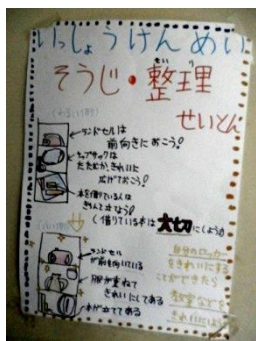 いっしょうけんめい
そうじ・整理
せいり
せいとん
ランドセルは
前向きにおこう!
ナップサックは
たたむか、きれいに
広げておこう!
本を借りている人は
きちんと本なろう!
(借りている本は大切にしよう)
ランドセル
が前を向いている
服が重ねて
きれいにしてある
本が立ててある
自分のロッカー
をきれいにする
ことができたら
教室なども
きれいにしよう